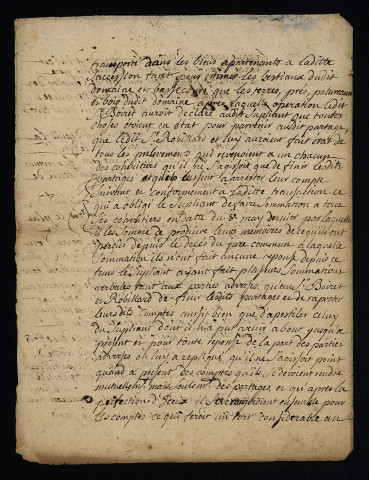 transporté dans les biens apartenants a laditte
succession tant pour estimer les bestiaux dudit
domaine et bassecour que les terres, prés, pastureaux
et bois dudit domaine apres laquelle operation ledit
Sr Boiret auroit declaré audit supliant que toutes
choses étoient en état pour parvenir audit partage
que ledit Sr Robillard et luy auroient fait état de
tous les prelevements qui revenoient a un chacun
des cohéritiers qu'il ne s'agissoit que de finir lesdits
partages et qu'ils eussent a arrester leur compte
suivant et conformement a laditte transaction ce
qui a obligé le supliant de faire sommation a tous
ses cohéritiers en datte du 5e may dernier par laquelle
il les somme de produire leurs mémoires de ce qu'ils ont
perçus depuis le decés du pere commun a laquelle
sommation ils n'ont fait aucune reponse depuis ce
tems le supliant ayant fait plusieurs sommations
verballes tant aux parties adverses, qu'aux Srs Boiret
et Robillard de finir lesdits partages et de raporter
leursdits comptes aussy bien que d'apostiler celuy
du supliant dont il n'a put avoir a bout jusqu'a
present et pour toute reponse de la part des parties
adverses on luy a repliqué qu'il ne s'agissoit point
quand a present des comptes qu'ils se devoient rendre
mutuellement mais seulement des partages et qu'après la
perfection d'iceux ils s'arrangeroient ensemble pour
les comptes ce qui feroit un tort considerable au